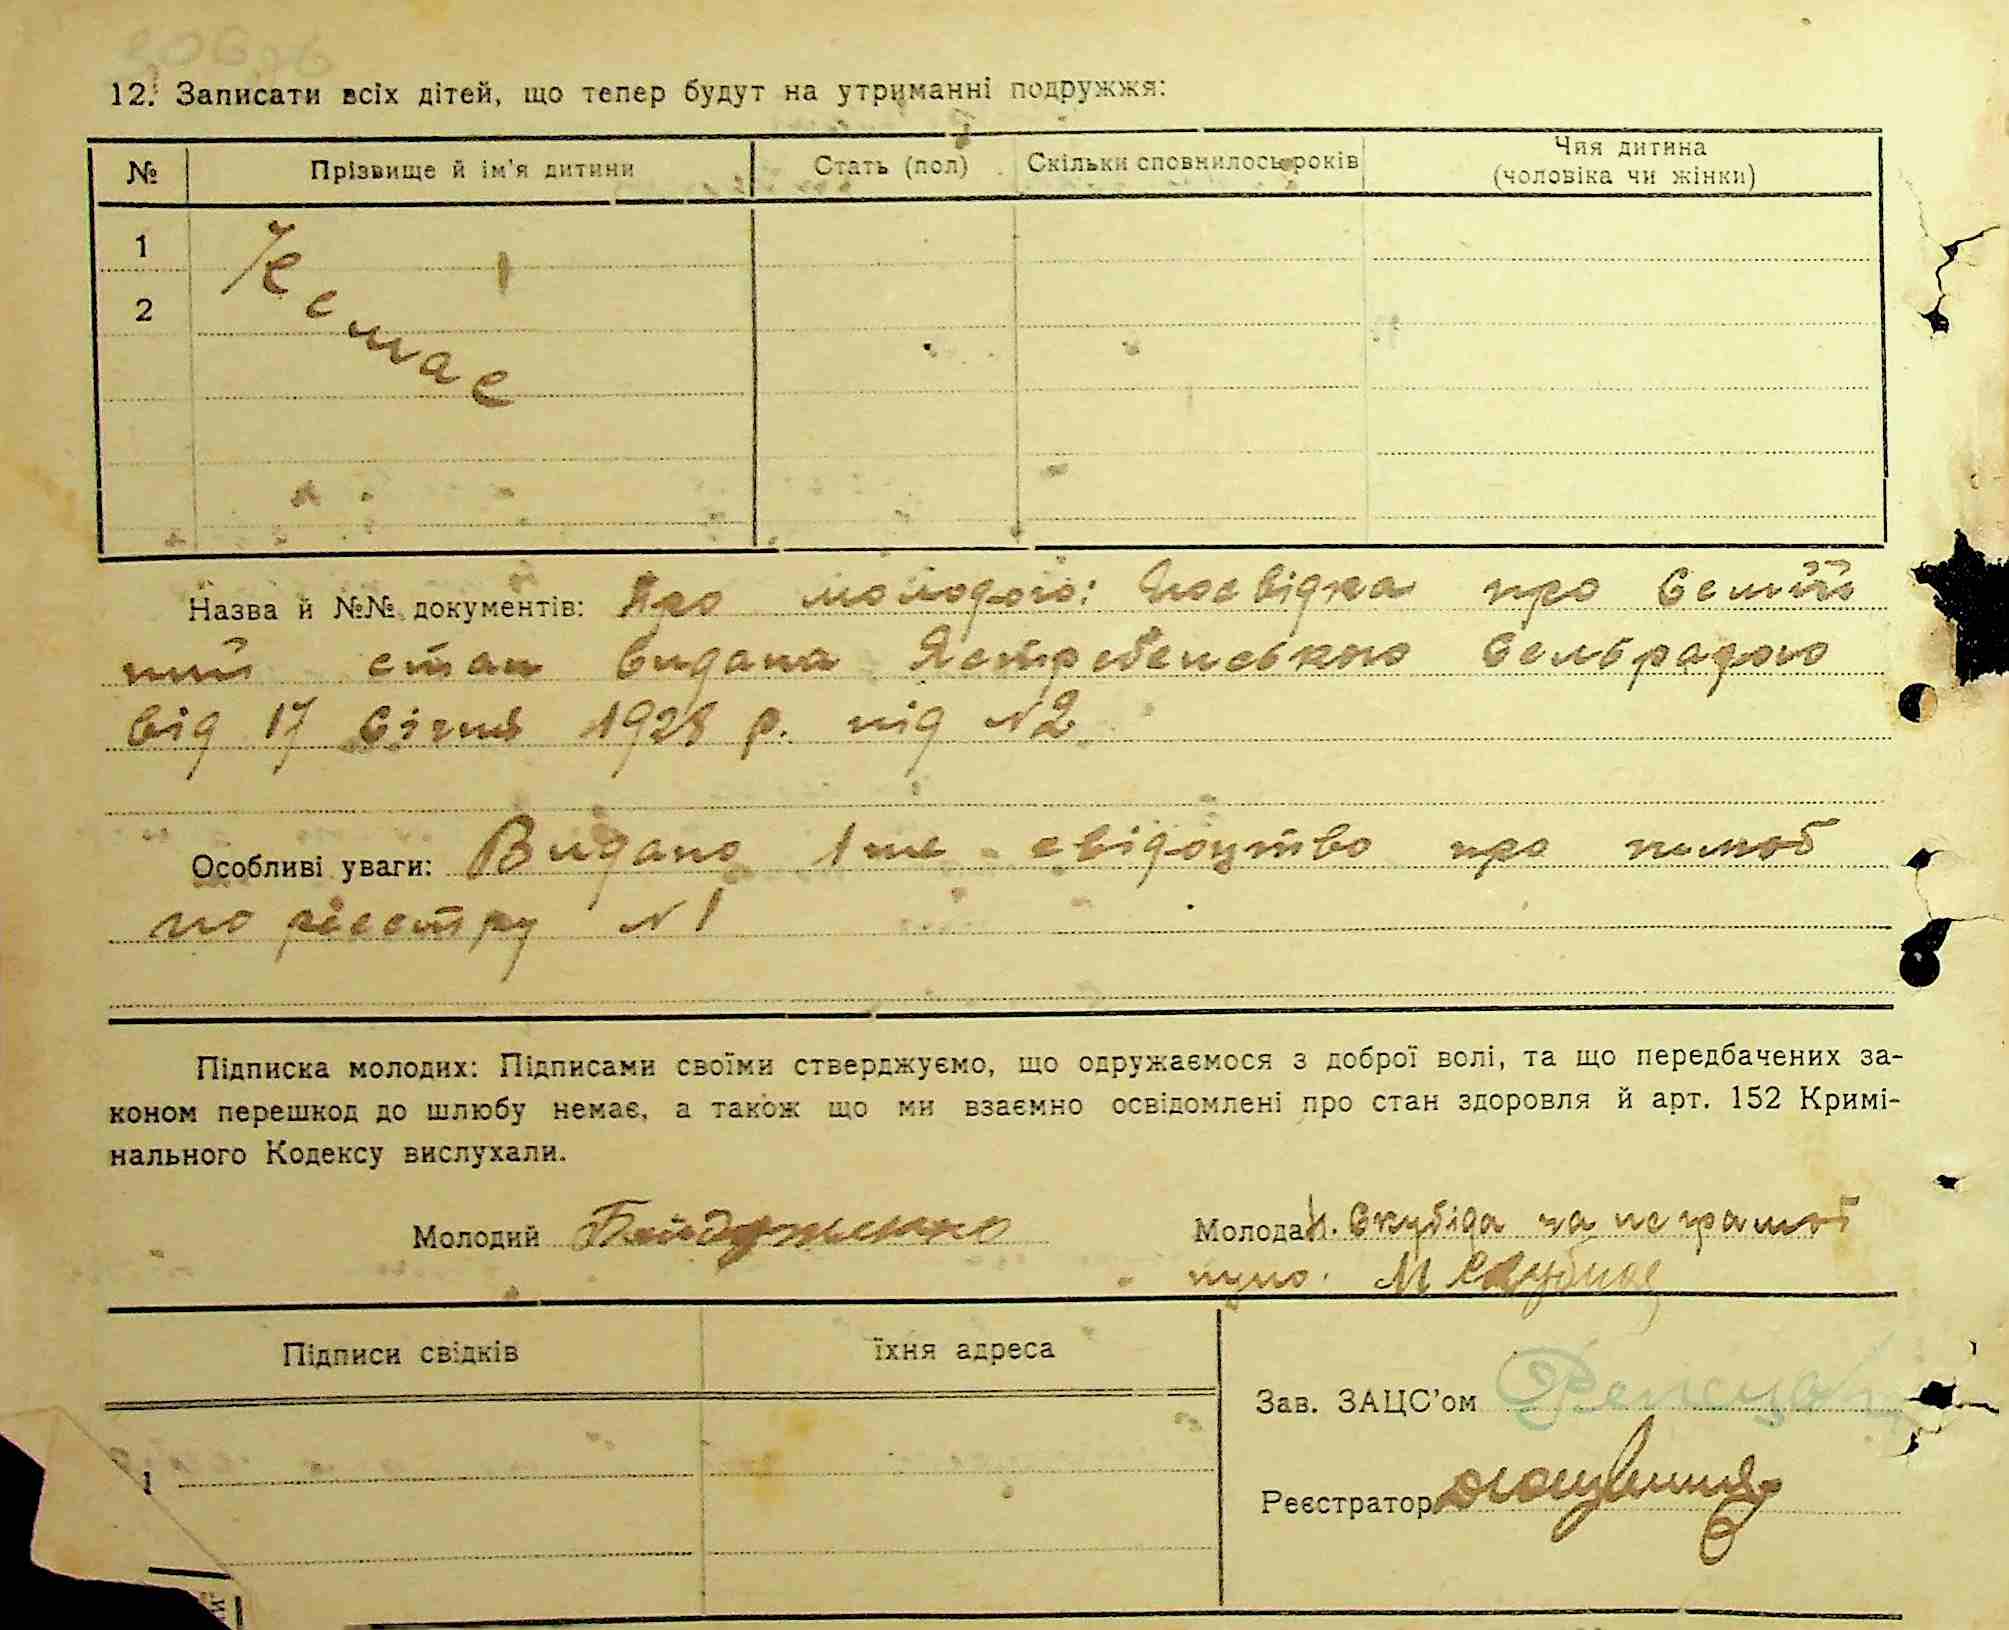 12. Записати всіх дітей, що тепер будут на утриманні подружжя:
№ Прізвище й ім'я дитини Стать (пол) Скільки сповнилось років Чия дитина (чоловіка чи жінки)
1
2
Немає
Назва й №№ документів: Про молодого: Посвідка про семій
ний стан видана Ястребенською сельрадою
від 17 січня 1928 р. під №2
Особливі уваги: Видано 1ше свідоцтво про шлюб
по реєстру №1
Підписка молодих: Підписами своїми стверджуємо, що одружаємося з доброї волі, та що передбачених за-
коном перешкод до шлюбу немає, а також що ми взаємно освідомлені про стан здоровля й арт. 152 Кримі-
нального Кодексу вислухали.
Молодий Молода Н. Скубіда за неграмот
ную.
Підписи свідків їхня адреса
Зав. ЗАЦС'ом
1
Реєстратор